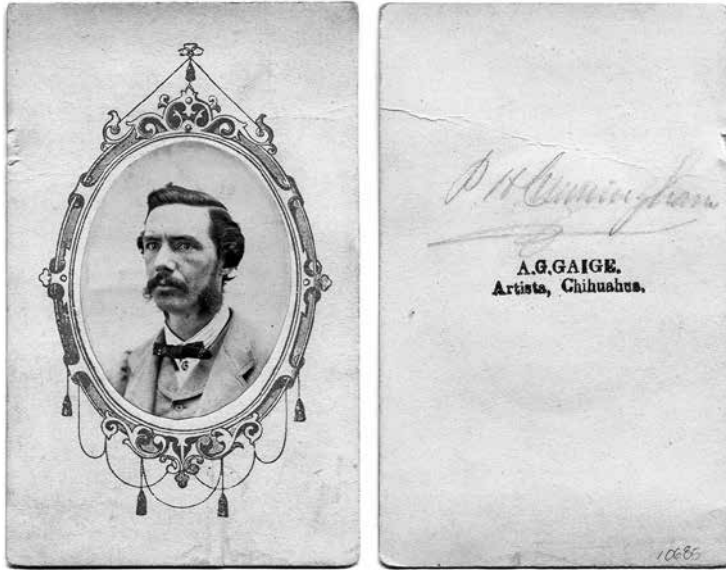 P H Cunningham
A.G.GAIGE.
Artista, Chihuahua.
10685